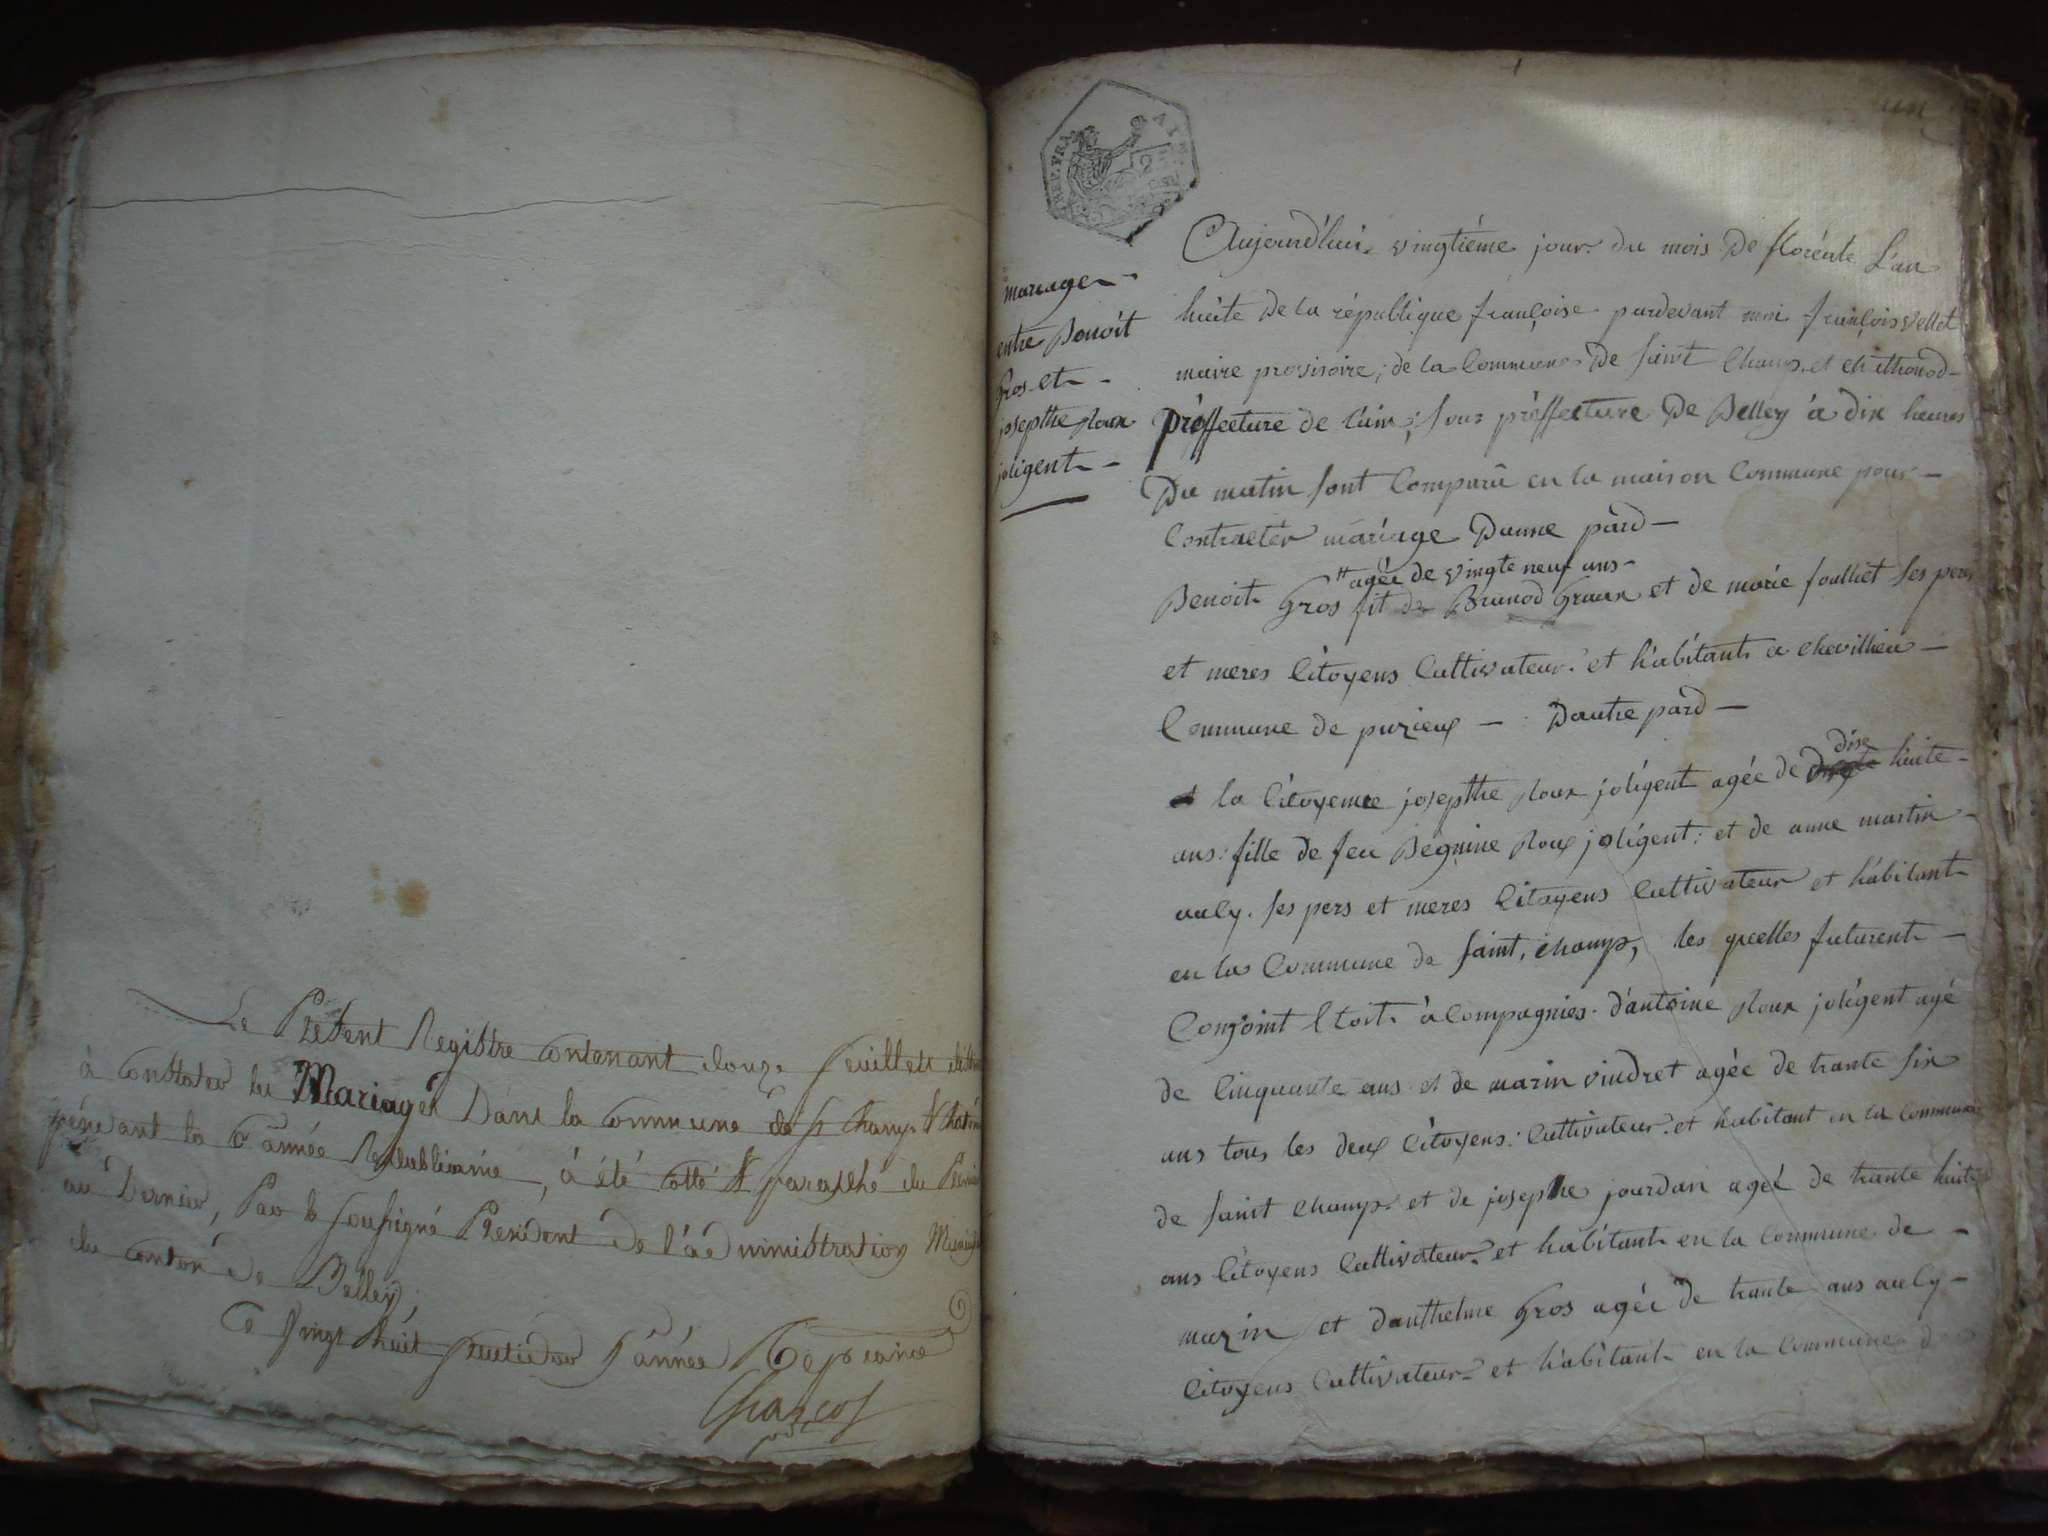 Le Present Registre contenant douze feuillets
à constater les Mariages Dans la commune de St Champ &
pendant la 8e année Republicaine, à été cotté & paraphé du Premier
au Dernier, Par le soussigné President de l'administration
du canton de Belley,
Ce vingt huit fructidor l'année
un
REP. FRA.
mariage
entre Benoit
Gros et
josepthe Roux
joligent
Aujourd'hui vingtiéme jour du mois De floréale L'an
huite De la république françoise pardevant moi françois vellet
maire provisoire, de la Commune De Saint Champ et chathonod
préffecture de l'ain, sous préffecture De Belley à dix heures
Du matin sont Comparû en la maison Commune pour
Contracter màriage Dunne pard
agée de vingte neuf ans
Benoit Gros fit de Brunod Graux et de marie foulliet ses pers
et meres Citoyens Cultivateur et habitant a chevillieu
Commune de puzieux Dautre pard
dixe
la Citoyenne josepthe Roux joligent agée de huite
ans fille de feu Beguine Roux joligent et de anne martin
auly ses pers et meres Citoyens Cultivateur et hàbitant
en las Commune de saint champ, les quelles futurent
Conjoint Etoit àcompagnies d'antoine Roux joligent agé
de Cinquante ans et de marin vindret agée de trante six
ans tous les deux Citoyens Cultivateur et habitant en la commune
de saint champ et de josephe jourdan agée de trante huite
ans Citoyens Cultivateur et habitant en la Commune de
mazin et danthelme Gros agée de trante ans auly
Citoyens Cultivateur et hàbitant en la Commune de